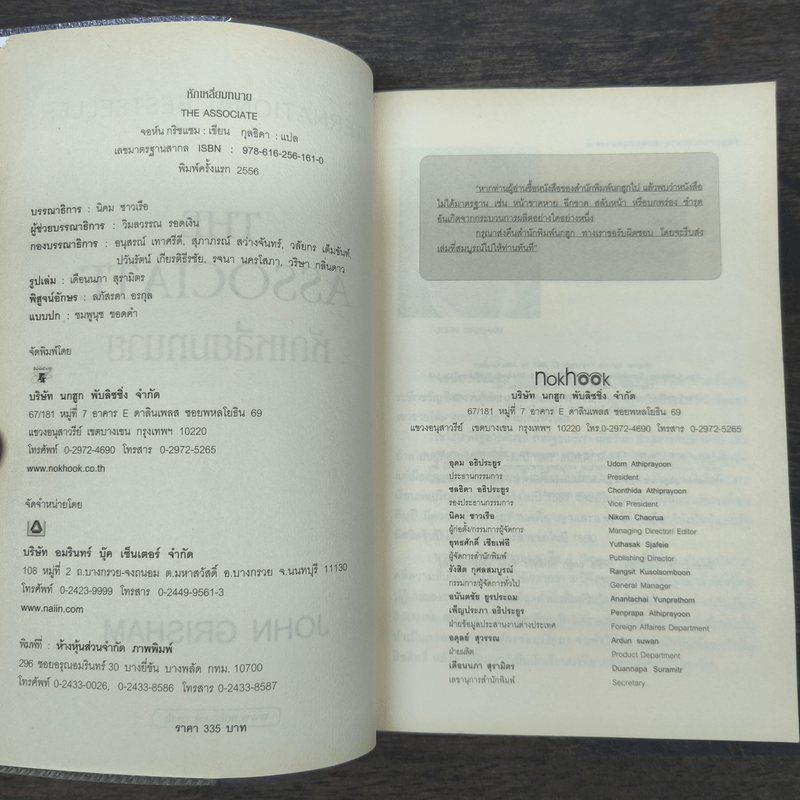 หักเหลี่ยมทนาย
THE ASSOCIATE
จอห์น กริชแชม : เขียน กุลธิดา : แปล
เลขมาตรฐานสากล ISBN : 978-616-256-161-0
พิมพ์ครั้งแรก 2556
บรรณาธิการ : นิคม ชาวเรือ
ผู้ช่วยบรรณาธิการ : วิมลวรรณ รอดเงิน
กองบรรณาธิการ : อนุสรณ์ เทาศรีดี, สุภาภรณ์ สว่างจันทร์, วลัยกร เต็มขันท์,
ปวันรัตน์ เกียรติธีรชัย, รจนา นครโสภา, วริษา กลิ่นดาว
รูปเล่ม : เดือนนภา สุรามิตร
พิสูจน์อักษร : ลภัสรดา อรกุล
แบบปก : ชมพูนุช ชอดคำ
จัดพิมพ์โดย
บริษัท นกฮูก พับลิชชิ่ง จำกัด
67/181 หมู่ที่ 7 อาคาร E ดาลินเพลส ซอยพหลโยธิน 69
แขวงอนุสาวรีย์ เขตบางเขน กรุงเทพฯ 10220
โทรศัพท์ 0-2972-4690 โทรสาร 0-2972-5265
www.nokhook.co.th
จัดจำหน่ายโดย
บริษัท อมรินทร์ บุ๊ค เซ็นเตอร์ จำกัด
108 หมู่ที่ 2 ถ.บางกรวย-จงถนอม ต.มหาสวัสดิ์ อ.บางกรวย จ.นนทบุรี 11130
โทรศัพท์ 0-2423-9999 โทรสาร 0-2449-9561-3
www.naiin.com
พิมพ์ที่ : ห้างหุ้นส่วนจำกัด ภาพพิมพ์
296 ซอยอรุณอมรินทร์ 30 บางยี่ขัน บางพลัด กทม. 10700
โทรศัพท์ 0-2433-0026, 0-2433-8586 โทรสาร 0-2433-8587
ราคา 335 บาท
"หากท่านผู้อ่านซื้อหนังสือของสำนักพิมพ์นกฮูกไป แล้วพบว่าหนังสือ
ไม่ได้มาตรฐาน เช่น หน้าขาดหาย ฉีกขาด สลับหน้า หรือบกพร่อง ชำรุด
อันเกิดจากกระบวนการผลิตอย่างใดอย่างหนึ่ง
กรุณาส่งคืนสำนักพิมพ์นกฮูก ทางเราขอรับผิดชอบ โดยจะรีบส่ง
เล่มที่สมบูรณ์ไปให้ท่านทันที"
nokhook
บริษัท นกฮูก พับลิชชิ่ง จำกัด
67/181 หมู่ที่ 7 อาคาร E ดาลินเพลส ซอยพหลโยธิน 69
แขวงอนุสาวรีย์ เขตบางเขน กรุงเทพฯ 10220 โทร.0-2972-4690 โทรสาร 0-2972-5265
อุดม อธิประยูร Udom Athiprayoon
ประธานกรรมการ President
ชลธิดา อธิประยูร Chonthida Athiprayoon
รองประธานกรรมการ Vice President
นิคม ชาวเรือ Nikom Chaorua
ผู้ก่อตั้ง/กรรมการผู้จัดการ Managing Director/ Editor
ยุทธศักดิ์ เชียเฟอี Yuthasak Sjafeie
ผู้จัดการสำนักพิมพ์ Publishing Director
รังสิต กุศลสมบูรณ์ Rangsit Kusolsomboon
กรรมการผู้จัดการทั่วไป General Manager
อนันตชัย ยูรประถม Anantachai Yunprathom
เพ็ญประภา อธิประยูร Penprapa Athiprayoon
ฝ่ายข้อมูลประสานงานต่างประเทศ Foreign Affaires Department
อดุลย์ สุวรรณ Ardun suwan
ฝ่ายผลิต Product Department
เดือนนภา สุรามิตร Duannapa Suramitr
เลขานุการสำนักพิมพ์ Secretary